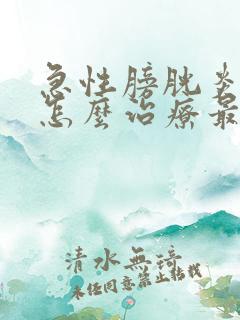 急性膀胱炎
怎麼治療最
清水無漪
未经同意禁止转载